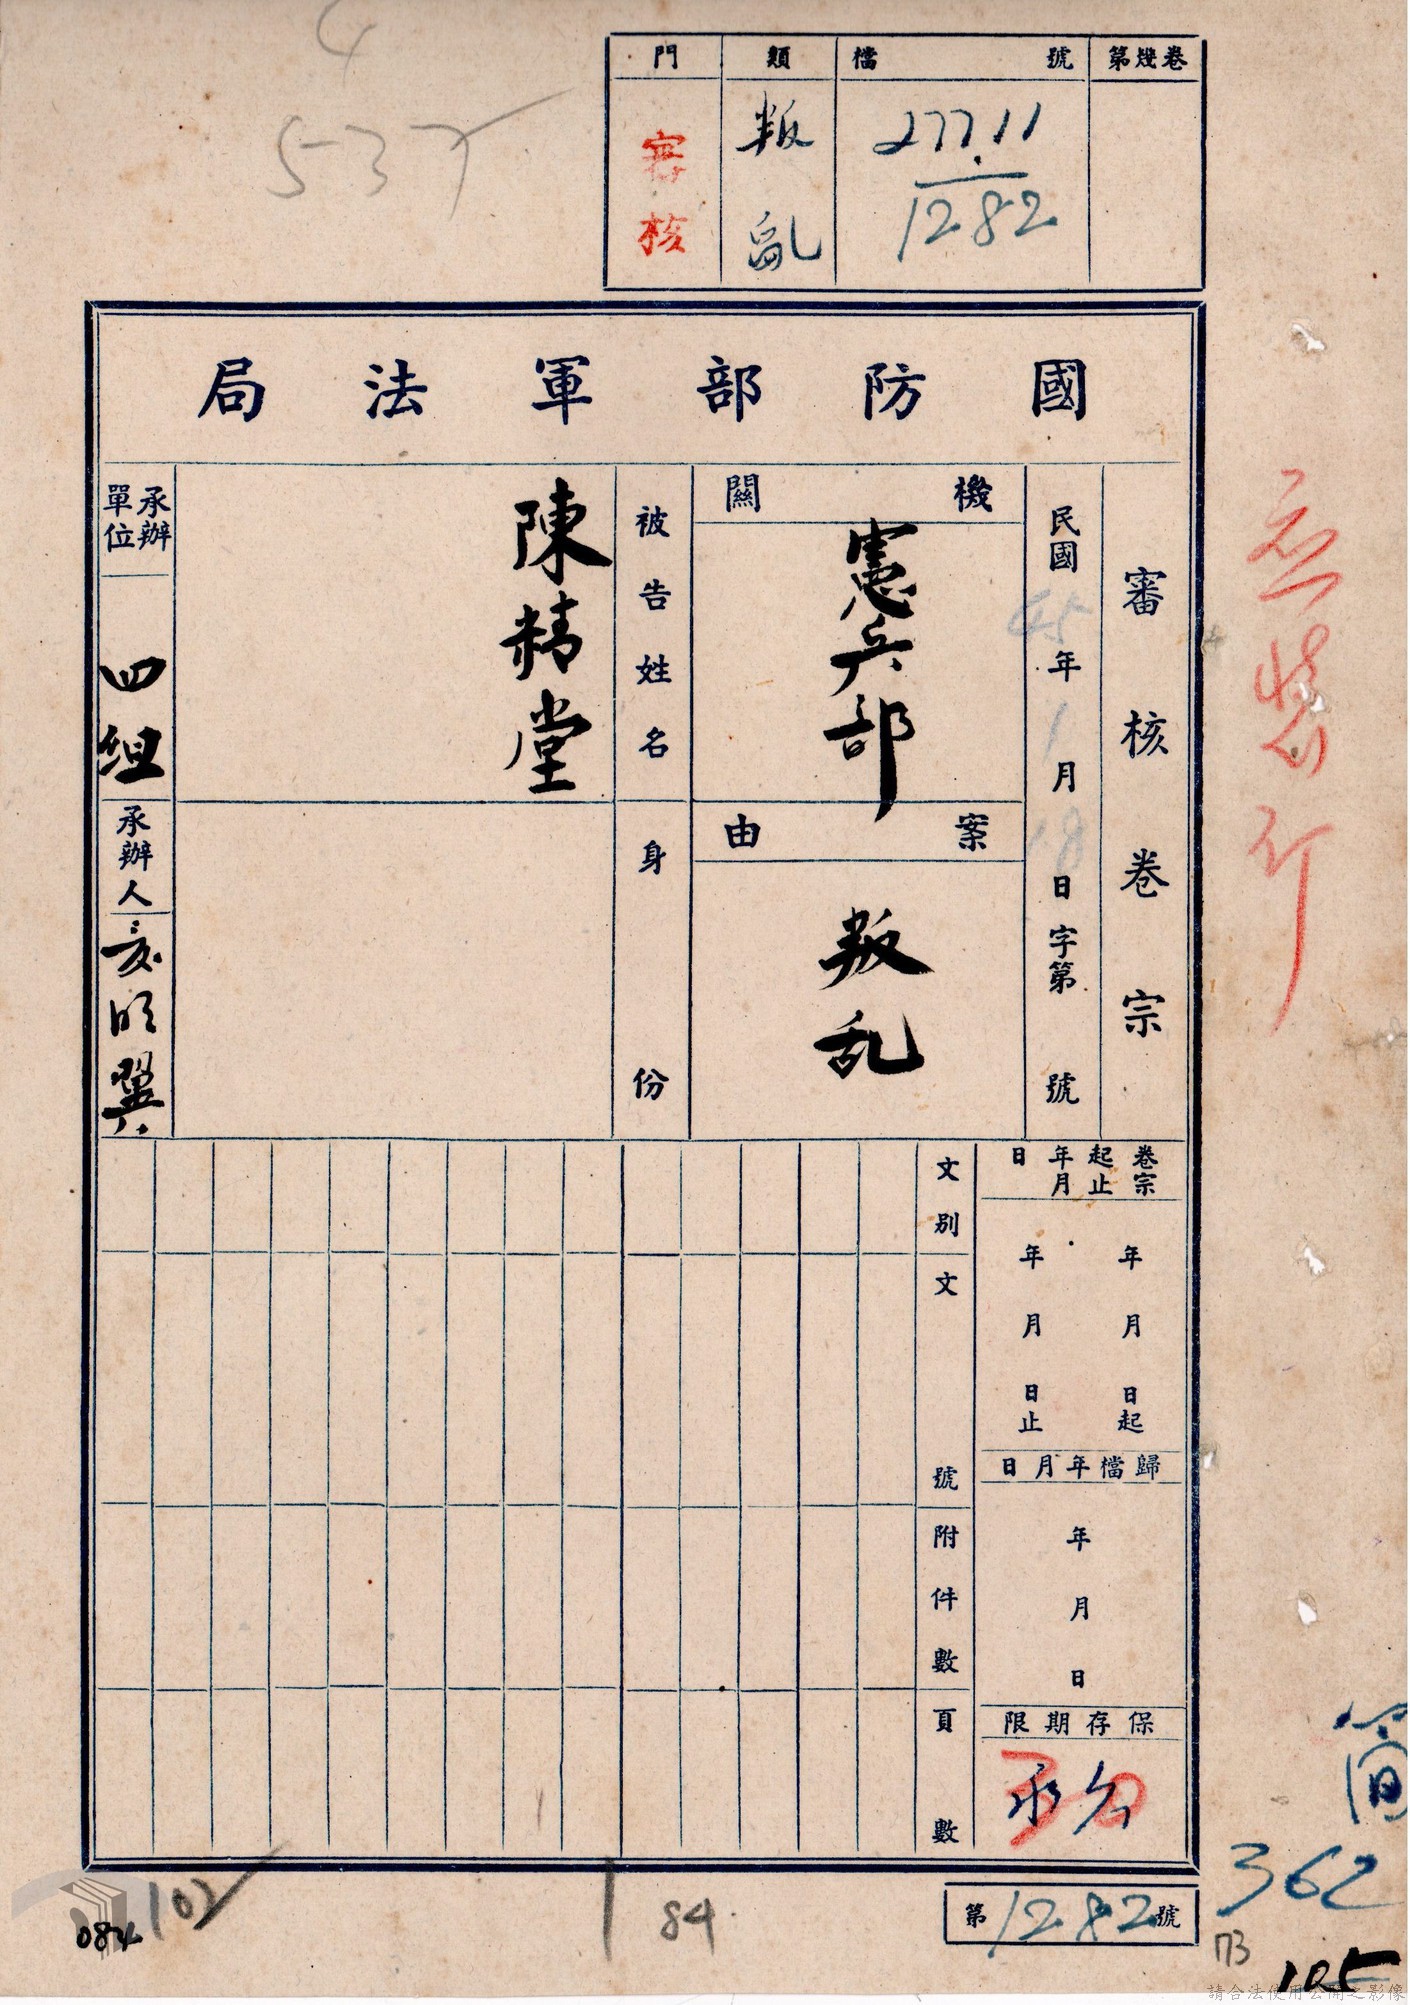 4
537
門 類 檔號 第幾卷
審核 叛亂 27711
1282
國防部軍法局
審核卷宗
民國45年1月18日 字第 號
機關
憲兵部
案由
叛乱
被告姓名
陳精堂
身份
承辦單位
四組
承辦人
卷宗起止年月日
年 月 日起
年 月 日止
歸檔年月日
年 月 日
保存期限
永久
文別
文號
附件數
頁數
第1282號
簡
362
173
105
84
102
084
請合法使用公開之影像